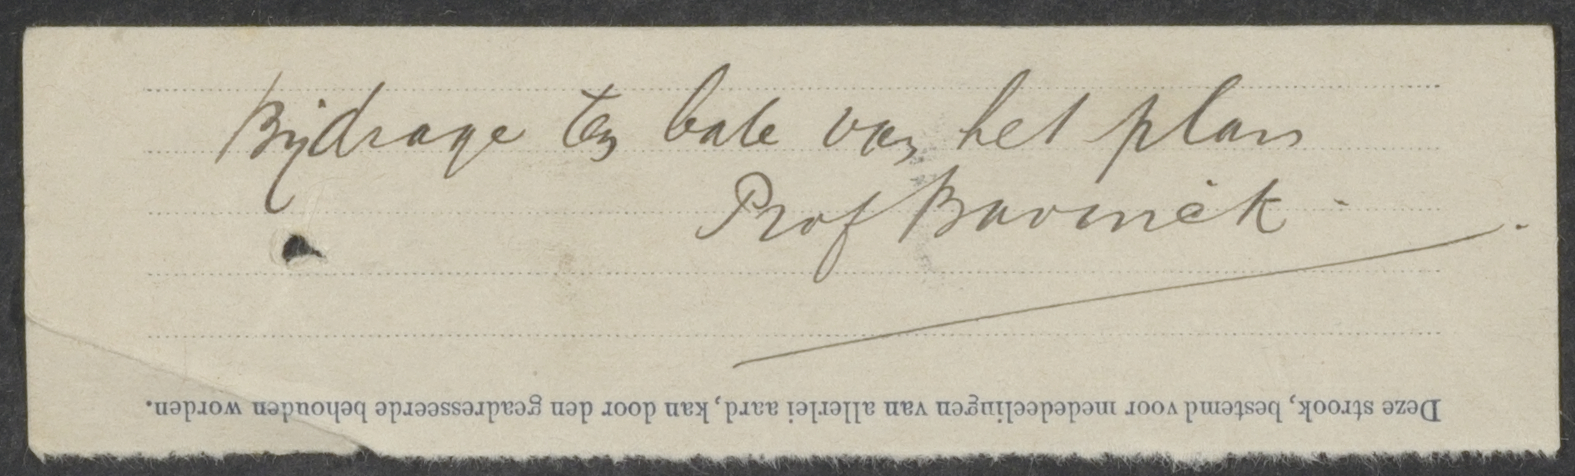 Bijdrage ten bate van het plan
Prof Bavinck.
Deze strook, bestemd voor mededeelingen van allerlei aard, kan door den geadresseerde behouden worden.